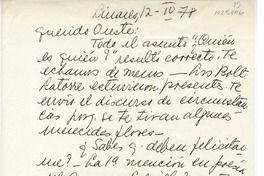 Linares, 2-IV-78
querido Oreste:
Todo el asunto "Quién
es quién" resultó correcto. Te
echamos de menos - Los Bolt
Latorre estuvieron presentes. Te
envío el discurso de circunstan
cias pog. se te tiran algunas
merecidas flores -
¿Sabes q. deben felicitar
me? - La 1ª mención en poesía